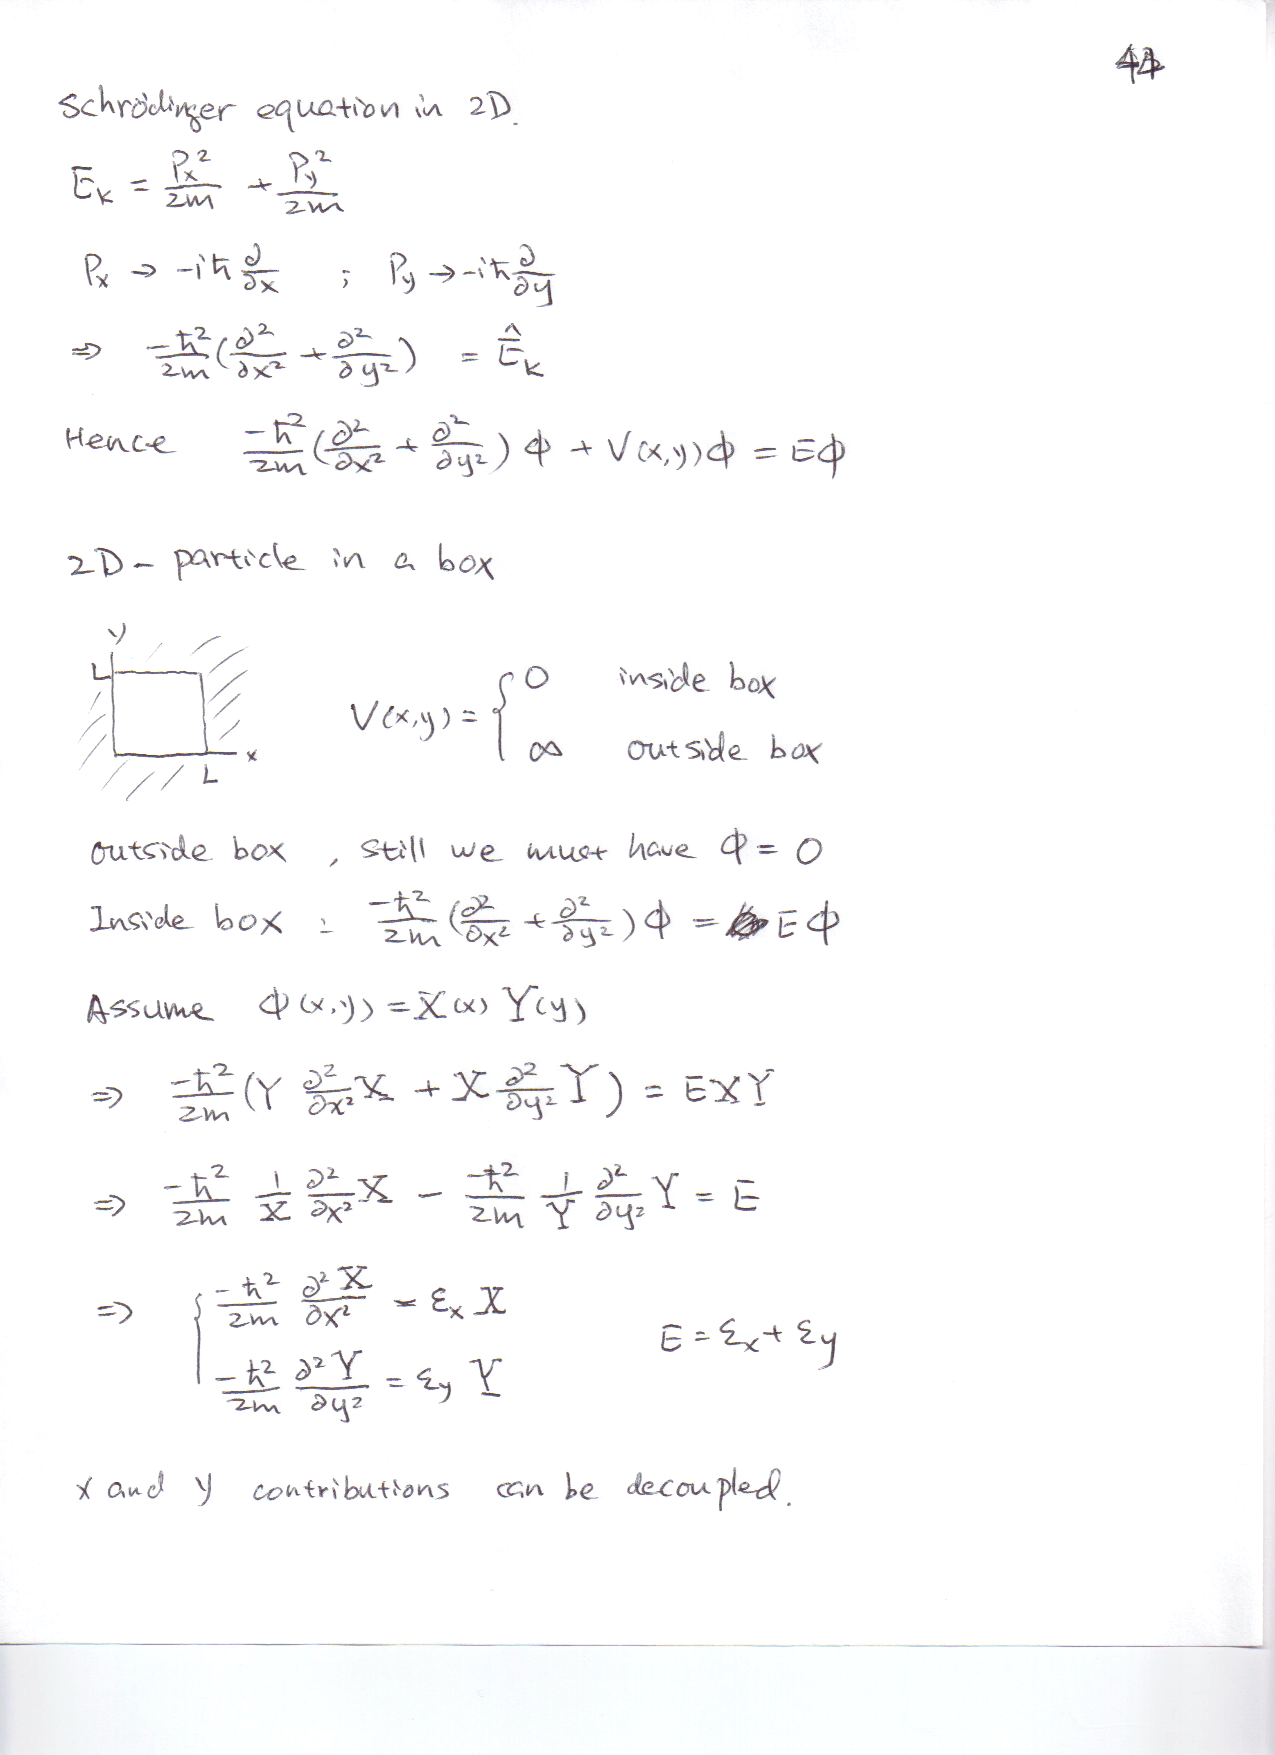 Schrödinger equation in 2D.
E_k = P_x²/2m + P_y²/2m
P_x → -iħ ∂/∂x ; P_y → -iħ ∂/∂y
⇒ -ħ²/2m (∂²/∂x² + ∂²/∂y²) = Ê_k
Hence -ħ²/2m (∂²/∂x² + ∂²/∂y²) Φ + V(x,y)Φ = EΦ
2D - particle in a box
y
L
x
L
V(x,y) = { 0 inside box
∞ outside box
outside box , still we must have Φ = 0
Inside box : -ħ²/2m (∂²/∂x² + ∂²/∂y²) Φ = EΦ
Assume Φ(x,y) = X(x) Y(y)
⇒ -ħ²/2m (Y ∂²/∂x² X + X ∂²/∂y² Y) = EXY
⇒ -ħ²/2m 1/X ∂²/∂x² X - ħ²/2m 1/Y ∂²/∂y² Y = E
⇒ { -ħ²/2m ∂²X/∂x² = ε_x X
-ħ²/2m ∂²Y/∂y² = ε_y Y
E = ε_x + ε_y
x and y contributions can be decoupled.